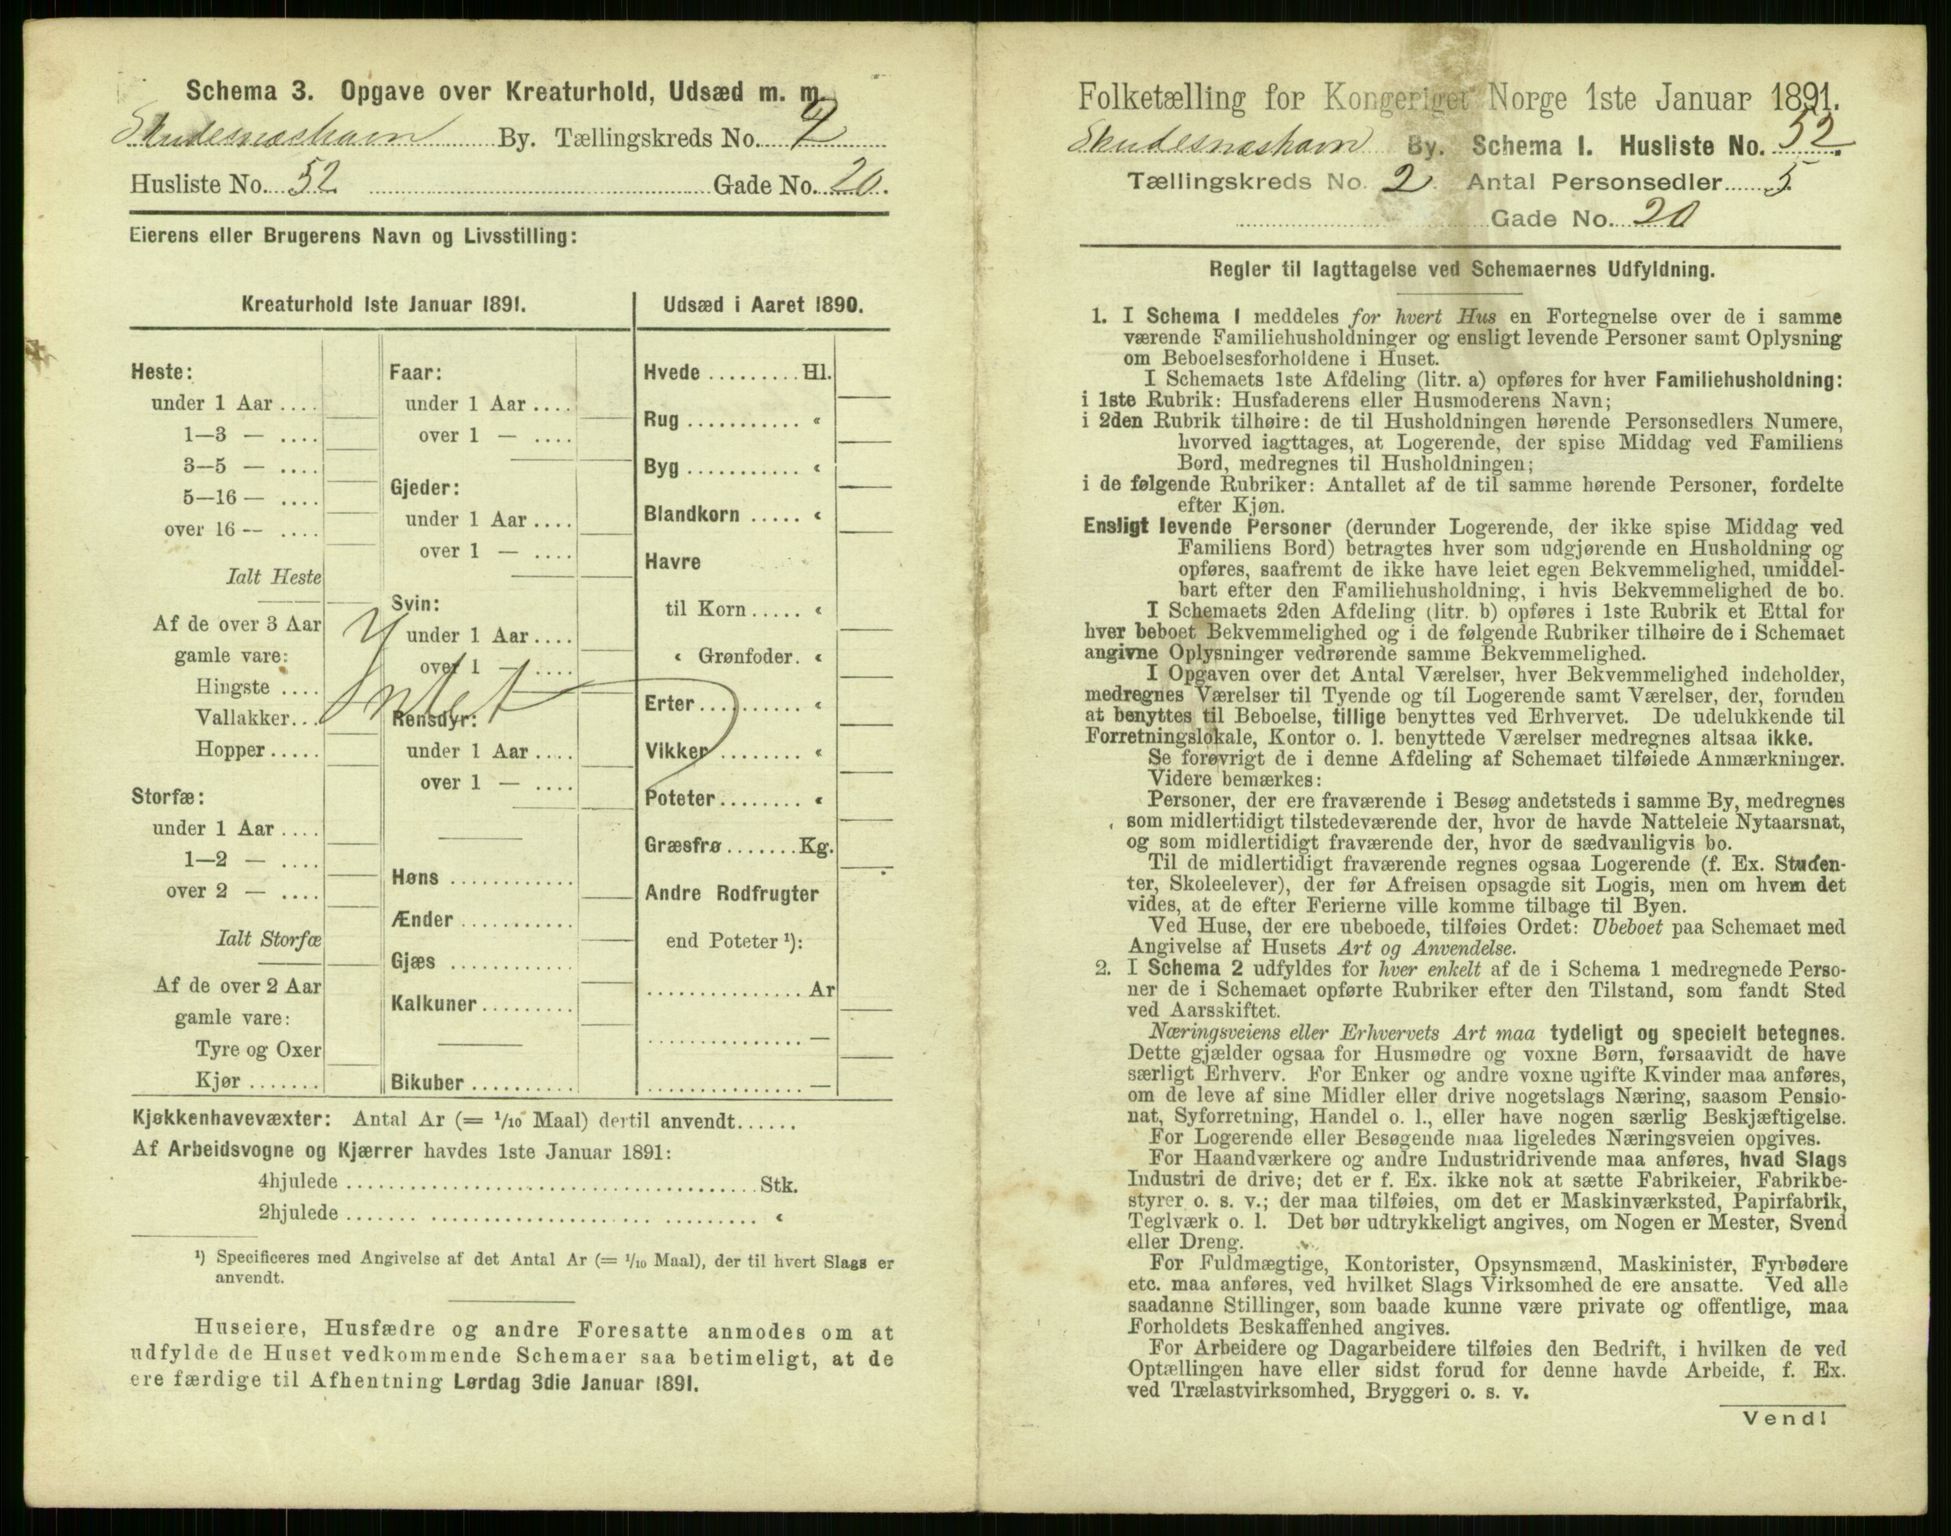 Schema 3. Opgave over Kreaturhold, Udsæd m. m.
Skudesnæshavn By. Tællingskreds No. 2
Husliste No. 52 Gade No. 20.
Eierens eller Brugerens Navn og Livsstilling:
Kreaturhold 1ste Januar 1891.
Heste:
under 1 Aar ....
1—3 — ....
3—5 — ....
5—16 — ....
over 16 — ....
Ialt Heste
Af de over 3 Aar
gamle vare:
Hingste ....
Vallakker...
Hopper .....
Storfæ:
under 1 Aar ....
1—2 — ....
over 2 — ....
Ialt Storfæ
Af de over 2 Aar
gamle vare:
Tyre og Oxer
Kjør .......
Faar:
under 1 Aar ....
over 1 — ....
Gjeder:
under 1 Aar ....
over 1 — ....
Svin:
under 1 Aar ....
over 1 — ....
Intet
Rensdyr:
under 1 Aar ....
over 1 — ....
Høns ............
Ænder ...........
Gjæs ............
Kalkuner .........
Bikuber ..........
Udsæd i Aaret 1890.
Hvede ......... Hl.
Rug ........... «
Byg ........... «
Blandkorn ..... «
Havre
til Korn ..... «
« Grønfoder. «
Erter .......... «
Vikker ......... «
Poteter ........ «
Græsfrø ....... Kg.
Andre Rodfrugter
end Poteter ¹):
............... Ar
............... —
............... —
Kjøkkenhavevæxter: Antal Ar (= 1/10 Maal) dertil anvendt......
Af Arbeidsvogne og Kjærrer havdes 1ste Januar 1891:
4hjulede ........................................ Stk.
2hjulede ........................................ «
¹) Specificeres med Angivelse af det Antal Ar (= 1/10 Maal), der til hvert Slags er
anvendt.
Huseiere, Husfædre og andre Foresatte anmodes om at
udfylde de Huset vedkommende Schemaer saa betimeligt, at de
ere færdige til Afhentning Lørdag 3die Januar 1891.
Folketælling for Kongeriget Norge 1ste Januar 1891.
Skudesnæshavn By. Schema I. Husliste No. 52.
Tællingskreds No. 2. Antal Personsedler 5
Gade No. 20
Regler til Iagttagelse ved Schemaernes Udfyldning.
1. I Schema 1 meddeles for hvert Hus en Fortegnelse over de i samme
værende Familiehusholdninger og ensligt levende Personer samt Oplysning
om Beboelsesforholdene i Huset.
I Schemaets 1ste Afdeling (litr. a) opføres for hver Familiehusholdning:
i 1ste Rubrik: Husfaderens eller Husmoderens Navn;
i 2den Rubrik tilhøire: de til Husholdningen hørende Personsedlers Numere,
hvorved iagttages, at Logerende, der spise Middag ved Familiens
Bord, medregnes til Husholdningen;
i de følgende Rubriker: Antallet af de til samme hørende Personer, fordelte
efter Kjøn.
Ensligt levende Personer (derunder Logerende, der ikke spise Middag ved
Familiens Bord) betragtes hver som udgjørende en Husholdning og
opføres, saafremt de ikke have leiet egen Bekvemmelighed, umiddel-
bart efter den Familiehusholdning, i hvis Bekvemmelighed de bo.
I Schemaets 2den Afdeling (litr. b) opføres i 1ste Rubrik et Ettal for
hver beboet Bekvemmelighed og i de følgende Rubriker tilhøire de i Schemaet
angivne Oplysninger vedrørende samme Bekvemmelighed.
I Opgaven over det Antal Værelser, hver Bekvemmelighed indeholder,
medregnes Værelser til Tyende og til Logerende samt Værelser, der, foruden
at benyttes til Beboelse, tillige benyttes ved Erhvervet. De udelukkende til
Forretningslokale, Kontor o. l. benyttede Værelser medregnes altsaa ikke.
Se forøvrigt de i denne Afdeling af Schemaet tilføiede Anmærkninger.
Videre bemærkes:
Personer, der ere fraværende i Besøg andetsteds i samme By, medregnes
som midlertidigt tilstedeværende der, hvor de havde Natteleie Nytaarsnat,
og som midlertidigt fraværende der, hvor de sædvanligvis bo.
Til de midlertidigt fraværende regnes ogsaa Logerende (f. Ex. Studen-
ter, Skoleelever), der før Afreisen opsagde sit Logis, men om hvem det
vides, at de efter Ferierne ville komme tilbage til Byen.
Ved Huse, der ere ubeboede, tilføies Ordet: Ubeboet paa Schemaet med
Angivelse af Husets Art og Anvendelse.
2. I Schema 2 udfyldes for hver enkelt af de i Schema 1 medregnede Perso-
ner de i Schemaet opførte Rubriker efter den Tilstand, som fandt Sted
ved Aarsskiftet.
Næringsveiens eller Erhvervets Art maa tydeligt og specielt betegnes.
Dette gjælder ogsaa for Husmødre og voxne Børn, forsaavidt de have
særligt Erhverv. For Enker og andre voxne ugifte Kvinder maa anføres,
om de leve af sine Midler eller drive nogetslags Næring, saasom Pensio-
nat, Syforretning, Handel o. l., eller have nogen særlig Beskjæftigelse.
For Logerende eller Besøgende maa ligeledes Næringsveien opgives.
For Haandværkere og andre Industridrivende maa anføres, hvad Slags
Industri de drive; det er f. Ex. ikke nok at sætte Fabrikeier, Fabrikbe-
styrer o. s. v.; der maa tilføies, om det er Maskinværksted, Papirfabrik,
Teglværk o. l. Det bør udtrykkeligt angives, om Nogen er Mester, Svend
eller Dreng.
For Fuldmægtige, Kontorister, Opsynsmænd, Maskinister, Fyrbødere
etc. maa anføres, ved hvilket Slags Virksomhed de ere ansatte. Ved alle
saadanne Stillinger, som baade kunne være private og offentlige, maa
Forholdets Beskaffenhed angives.
For Arbeidere og Dagarbeidere tilføies den Bedrift, i hvilken de ved
Optællingen have eller sidst forud for denne havde Arbeide, f. Ex.
ved Trælastvirksomhed, Bryggeri o. s. v.
Vend!